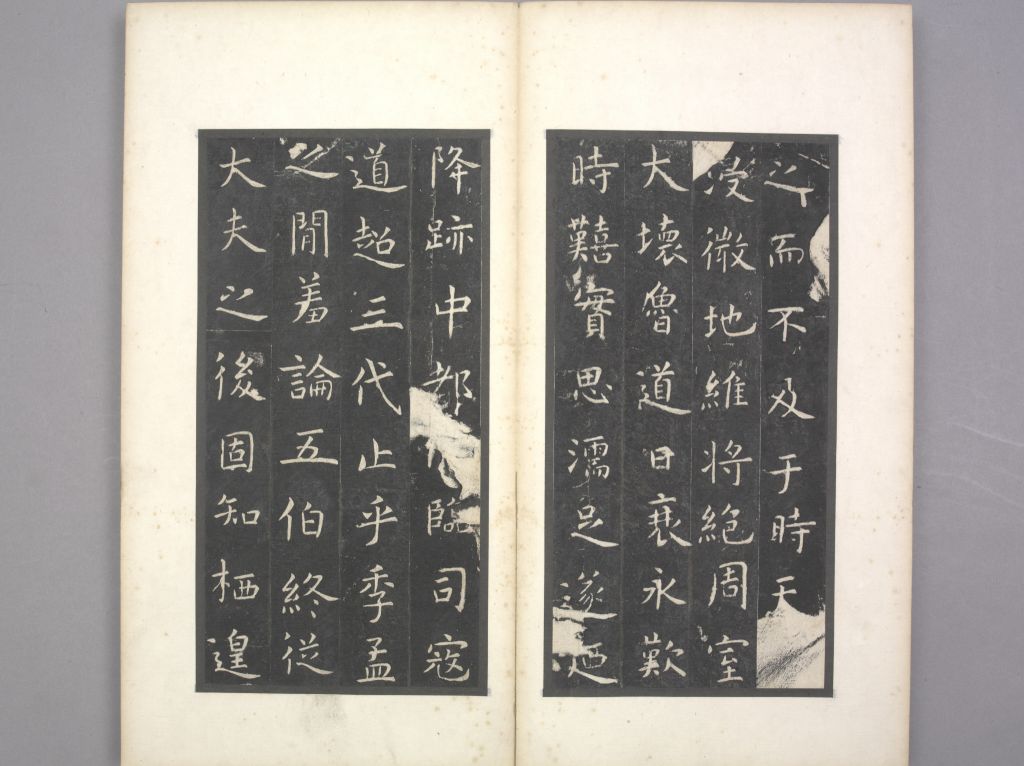 之而不及于時天
浸微地維將絕周室
大壞魯道日衰永歎
時囏實思濡足遂迺
降跡中都臨司寇
道超三代止乎季孟
之閒羞論五伯終從
大夫之後固知栖遑